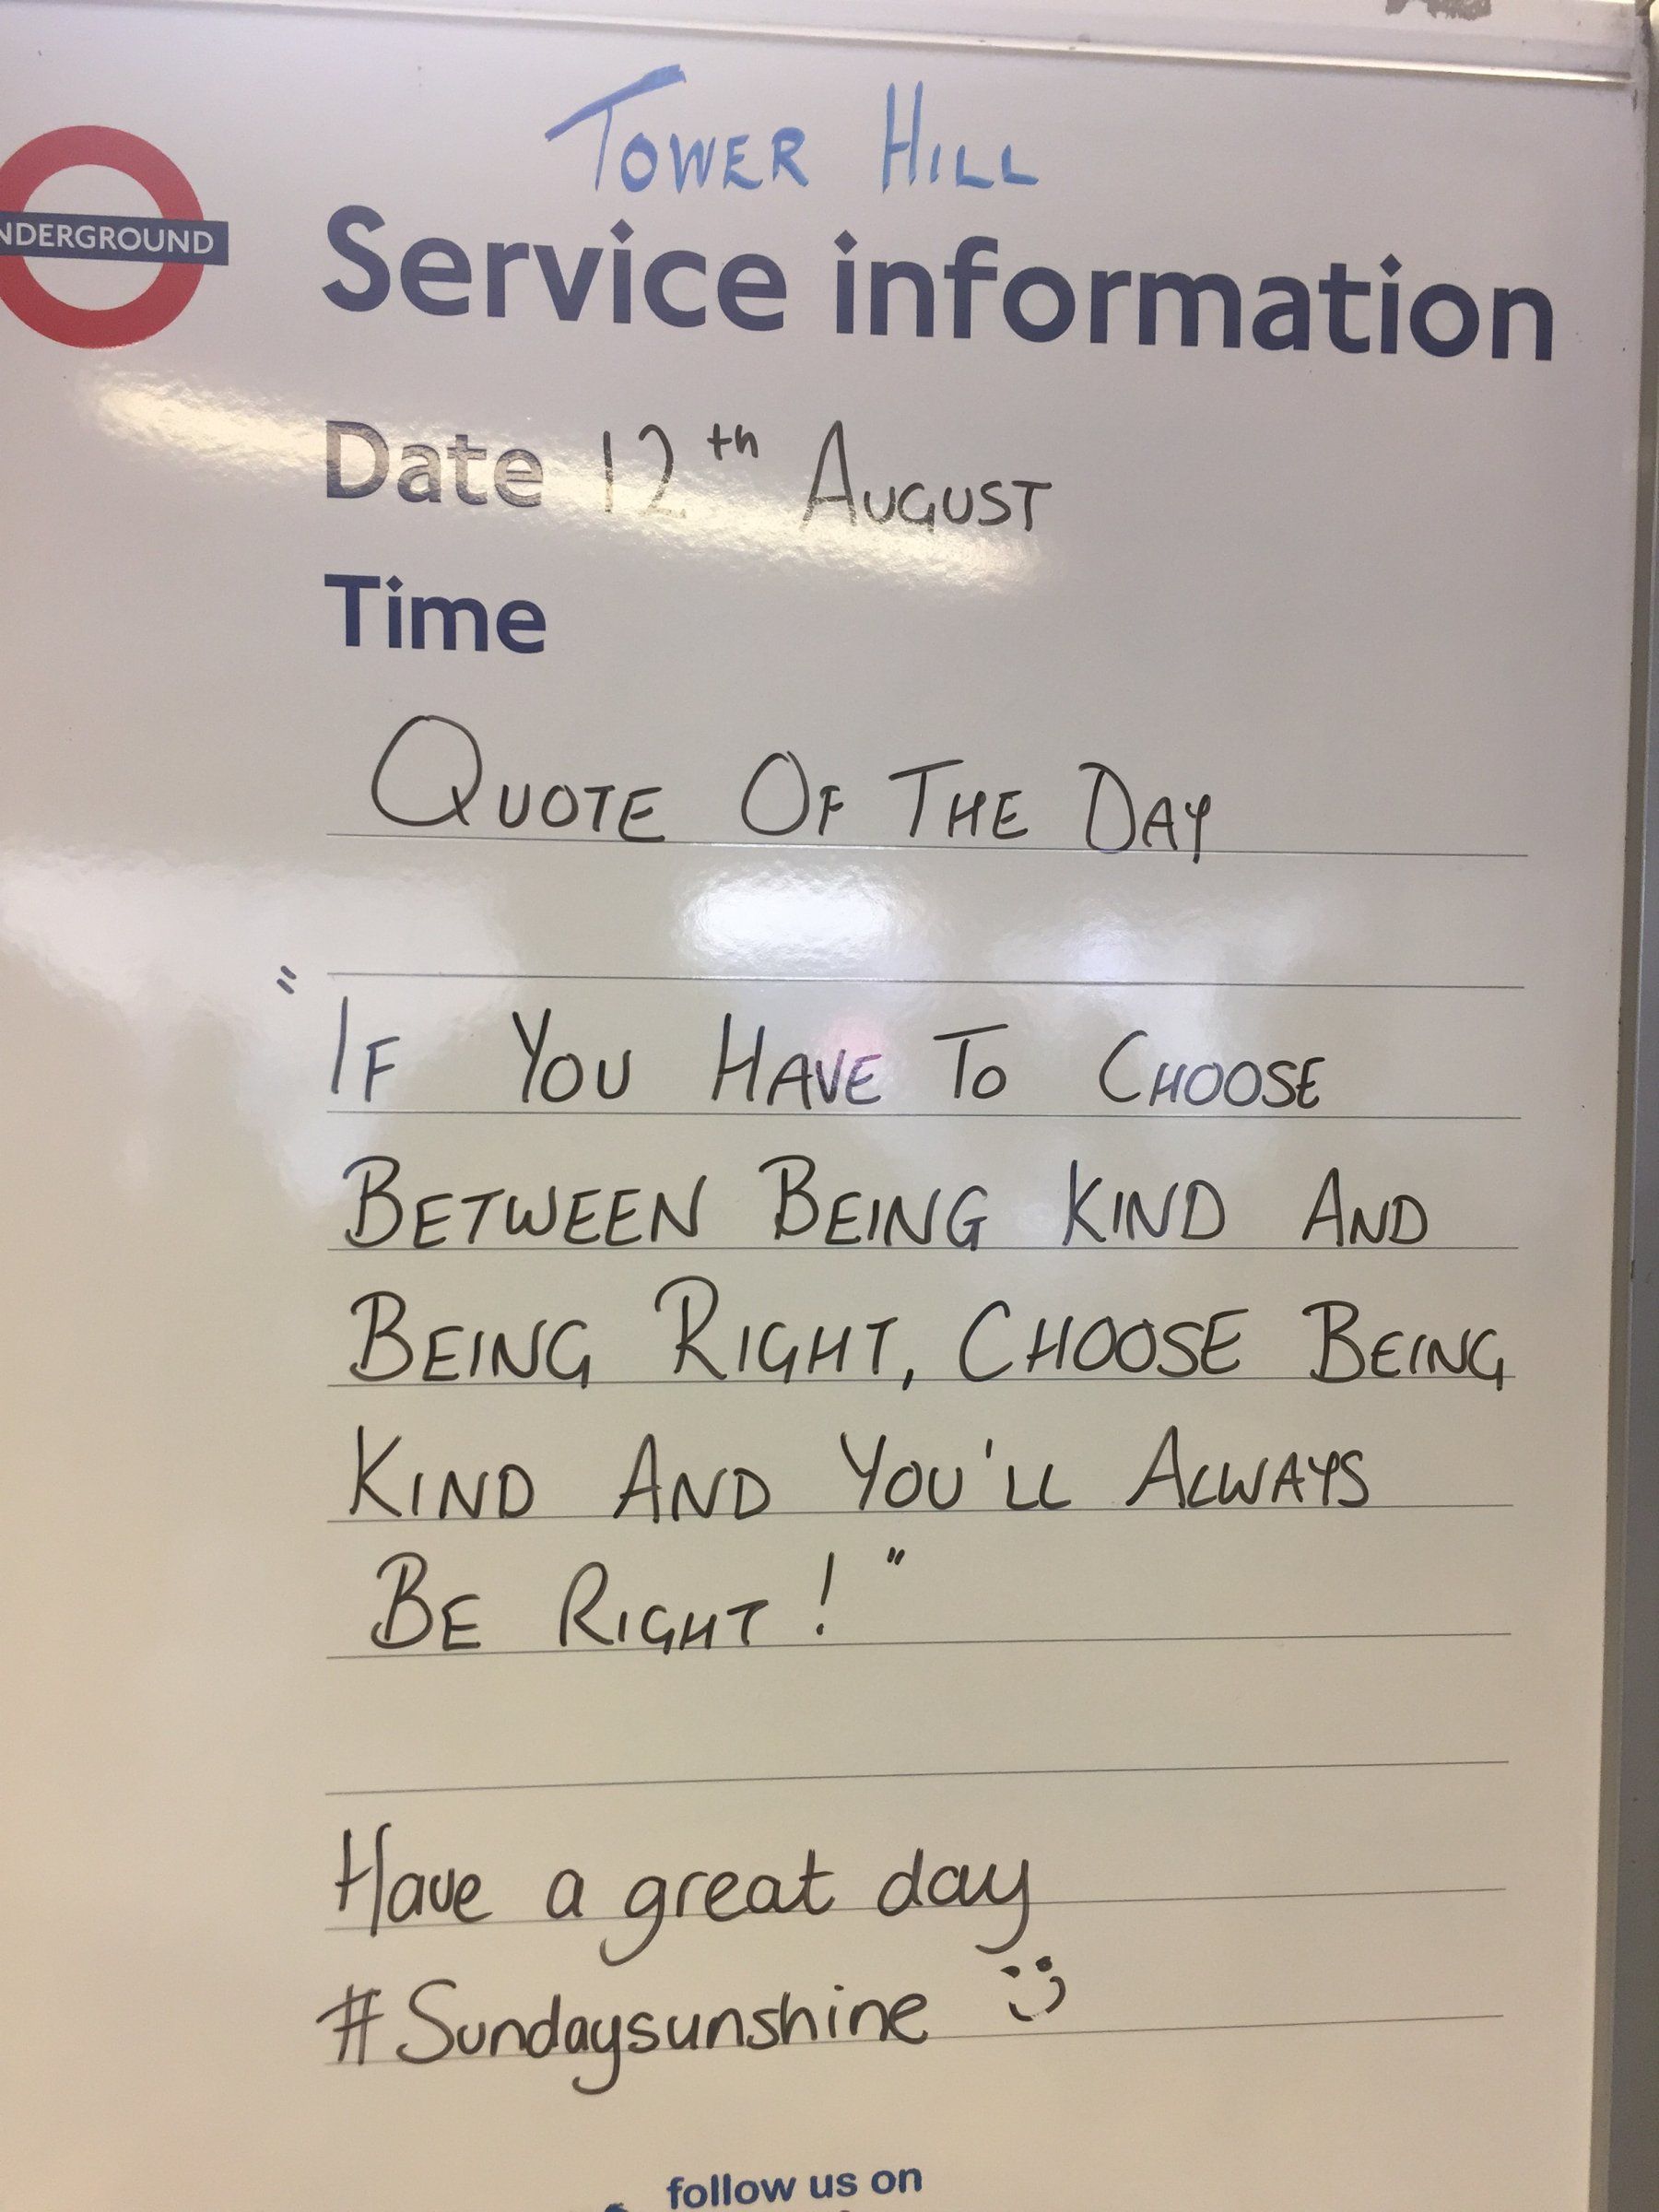 TOWER HILL
NDERGROUND
Service information
Date 12th AUGUST
Time
QUOTE OF THE DAY
"IF YOU HAVE TO CHOOSE
BETWEEN BEING KIND AND
BEING RIGHT, CHOOSE BEING
KIND AND YOU'LL ALWAYS
BE RIGHT!"
Have a great day
#Sundaysunshine
follow us on